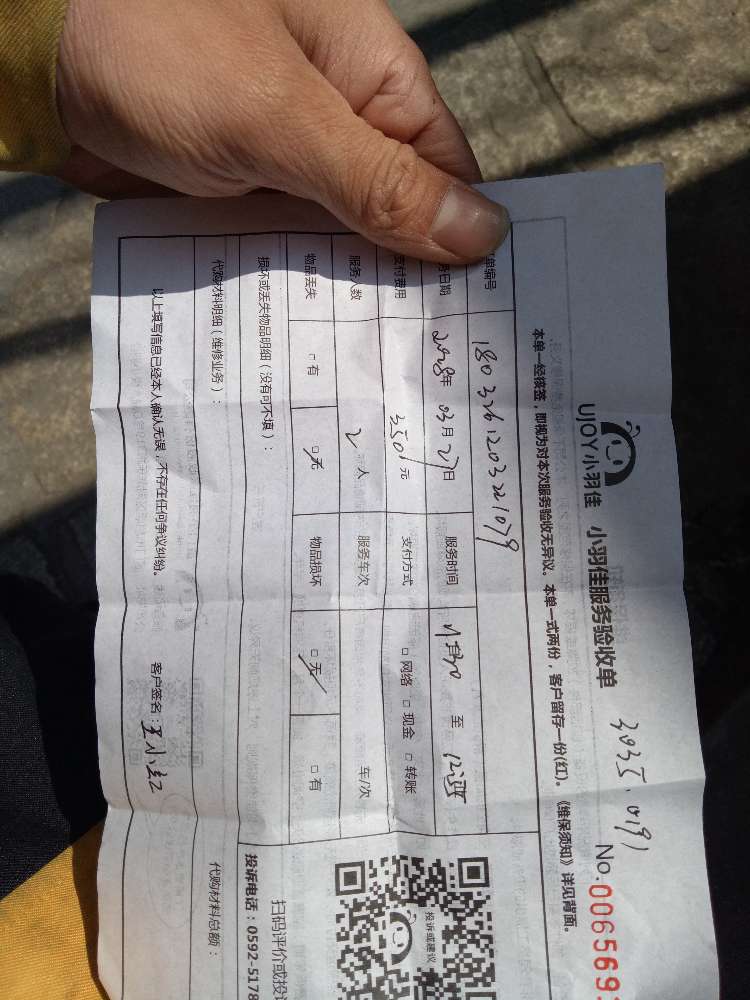 UJOY小羽佳 小羽佳服务验收单
3035.0191
No.0065693
本单一经核签，即视为对本次服务验收无异议。本单一式两份，客户留存一份(红)。《维保须知》详见背面。
单编号 1803261203221079
务日期 2018年 03月 27日 服务时间 至
支付费用 350元 支付方式 □网络 □现金 □转账
服务人数 2 人 服务车次 车/次
物品丢失 □有 □无 物品损坏 □无 □有
损坏或丢失物品明细（没有可不填）：
代购材料明细（维修业务）：
代购材料总额：
以上填写信息已经本人确认无误，不存在任何争议纠纷。 客户签名：王小红
投诉或建议
扫码评价或投
投诉电话：0592-5178